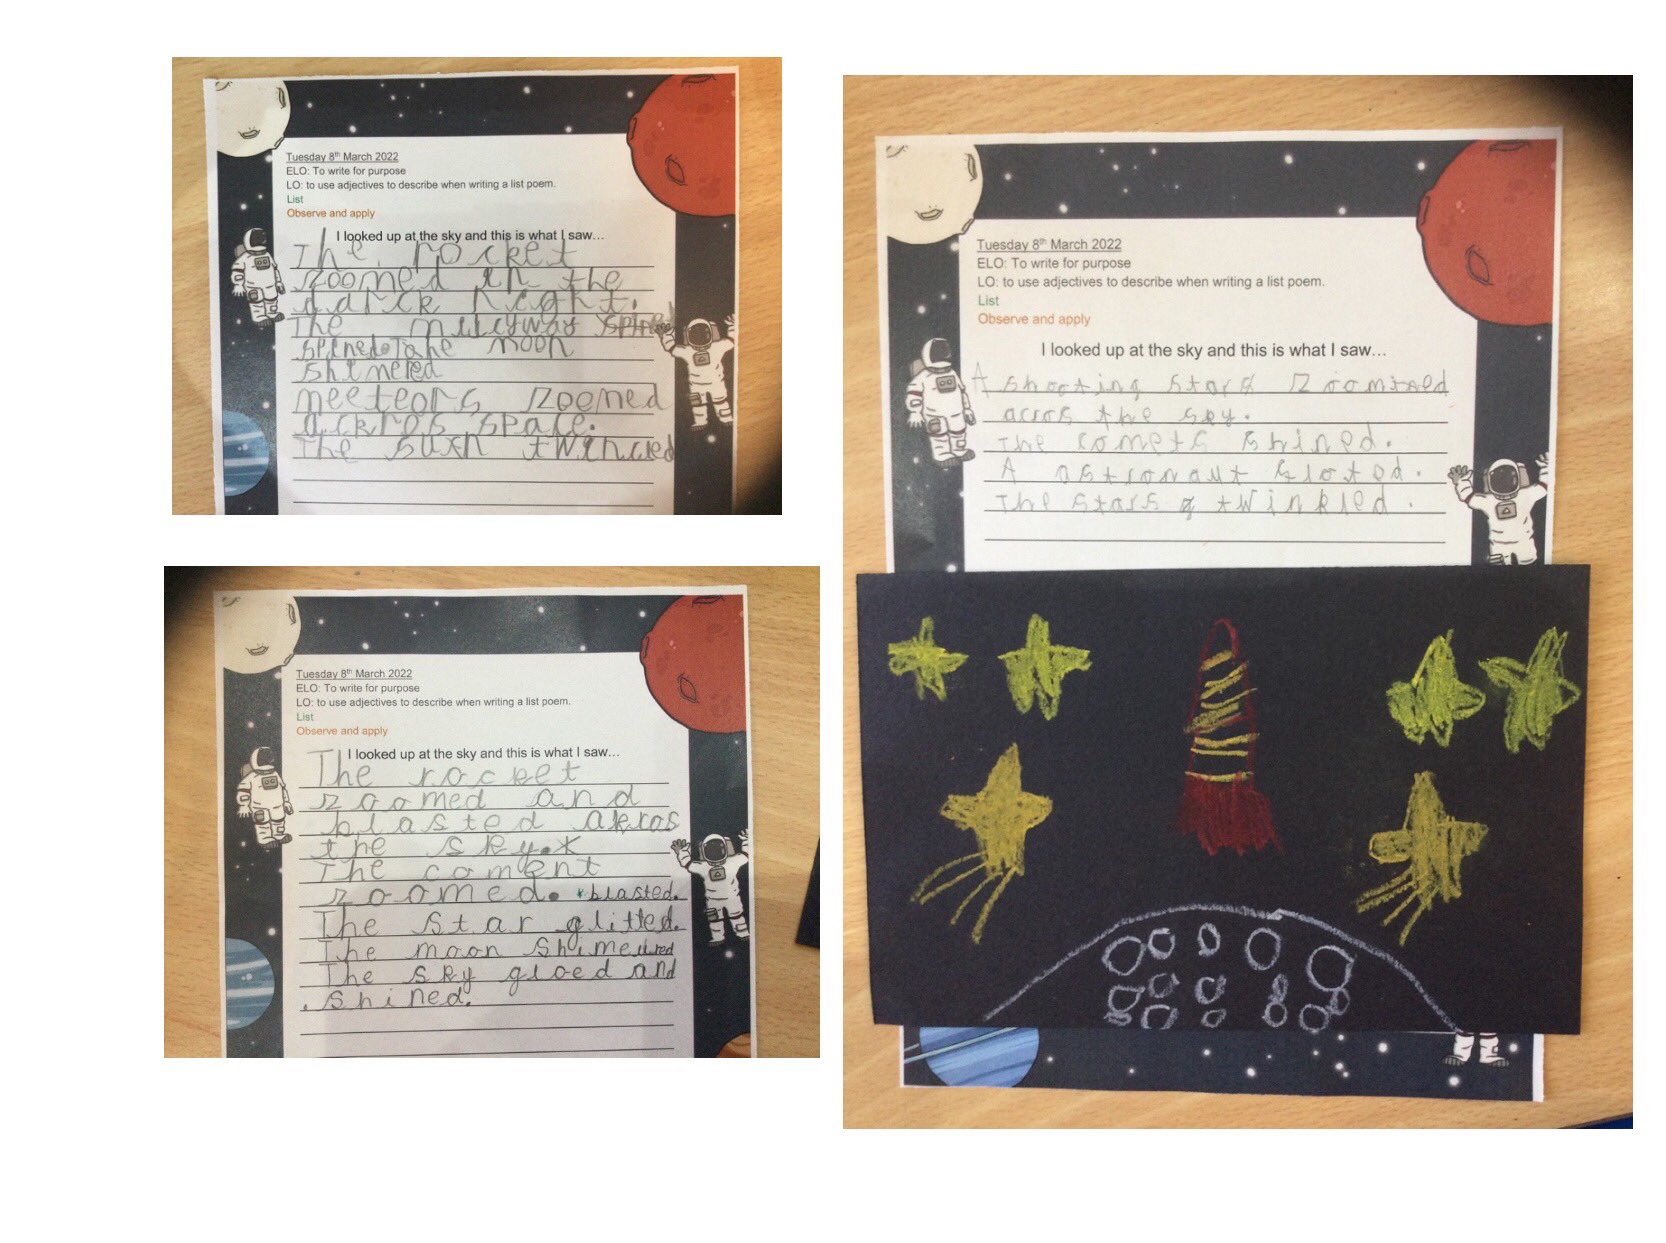 Tuesday 8th March 2022
ELO: To write for purpose
LO: to use adjectives to describe when writing a list poem.
List
Observe and apply
I looked up at the sky and this is what I saw...
The rocket
zoomed in the
darck night.
The milcyway
spined. The moon
shimered
meeteors zoomed
ackros space.
The suxn twincled
Tuesday 8th March 2022
ELO: To write for purpose
LO: to use adjectives to describe when writing a list poem.
List
Observe and apply
I looked up at the sky and this is what I saw...
The rocket
zoomed and
blasted akros
the sky.*
The coment
zoomed. *blasted.
The star glitted.
The moon shimeured
The sky gloed and
.shined.
Tuesday 8th March 2022
ELO: To write for purpose
LO: to use adjectives to describe when writing a list poem.
List
Observe and apply
I looked up at the sky and this is what I saw...
A shooting stars
acros the sky.
The comets shined.
A astronaut floted.
The stars twinkled.